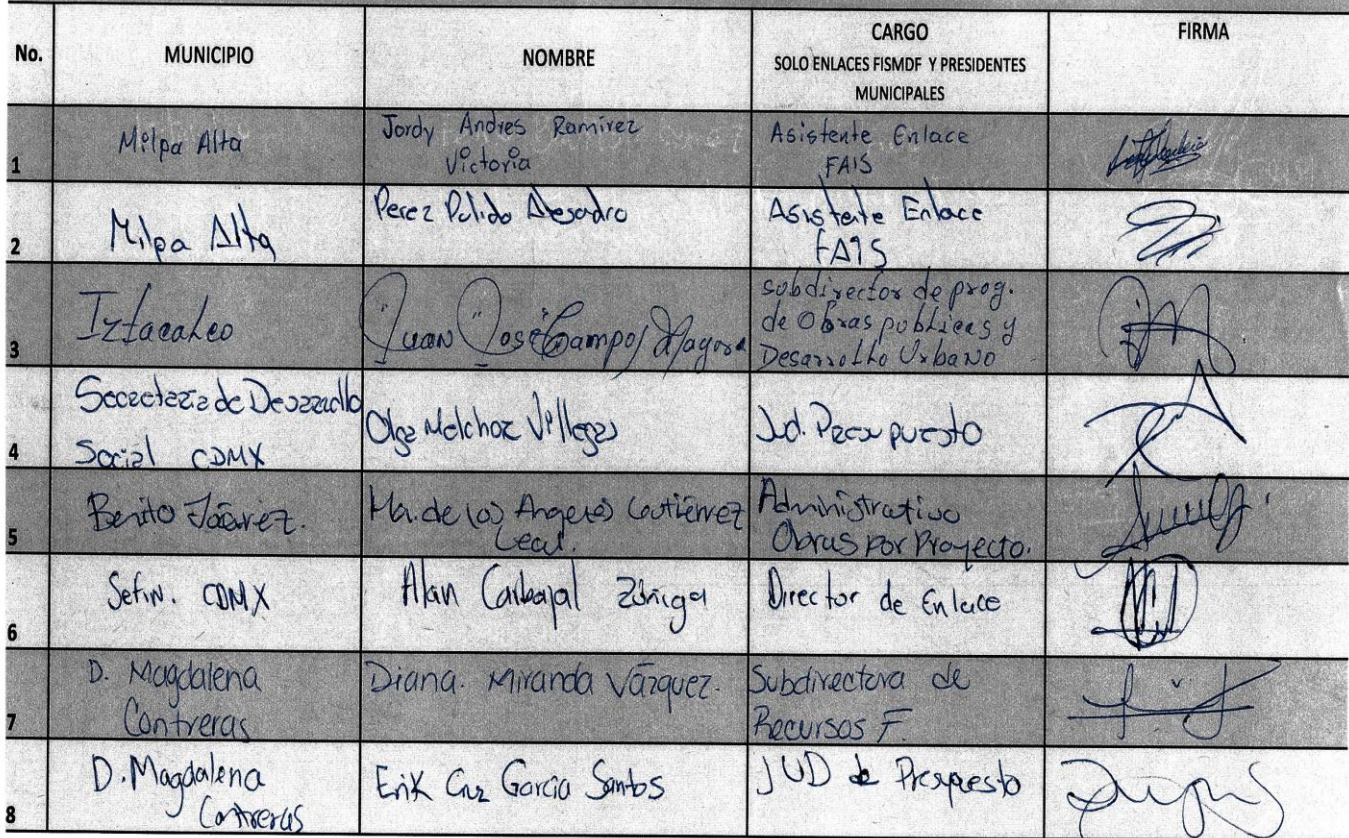 No.
MUNICIPIO
NOMBRE
CARGO
SOLO ENLACES FISMDF Y PRESIDENTES
MUNICIPALES
FIRMA
1
Milpa Alta
Jordy Andres Ramirez
Victoria
Asistente Enlace
FAIS
2
Milpa Alta
Perez Pulido Alesadro
Asistente Enlace
FAIS
3
Iztacalco
Juan José Campos
subdirector de prog.
de Obras publicas y
Desarrollo Urbano
4
Secretaria de Desarrollo
Social CDMX
Olga Melchor Villegas
Jud. Presupuesto
5
Benito Juárez.
Ma. de los Angeles Gutiérrez
Leal.
Administrativo
Obras por Proyecto.
6
Sefin. CDMX
Alan Carbajal Zúñiga
Director de Enlace
7
D. Magdalena
Contreras
Diana. Miranda Vázquez.
Subdirectora de
Recursos F.
8
D. Magdalena
Contreras
Erik Cruz García Santos
JUD de Presupesto